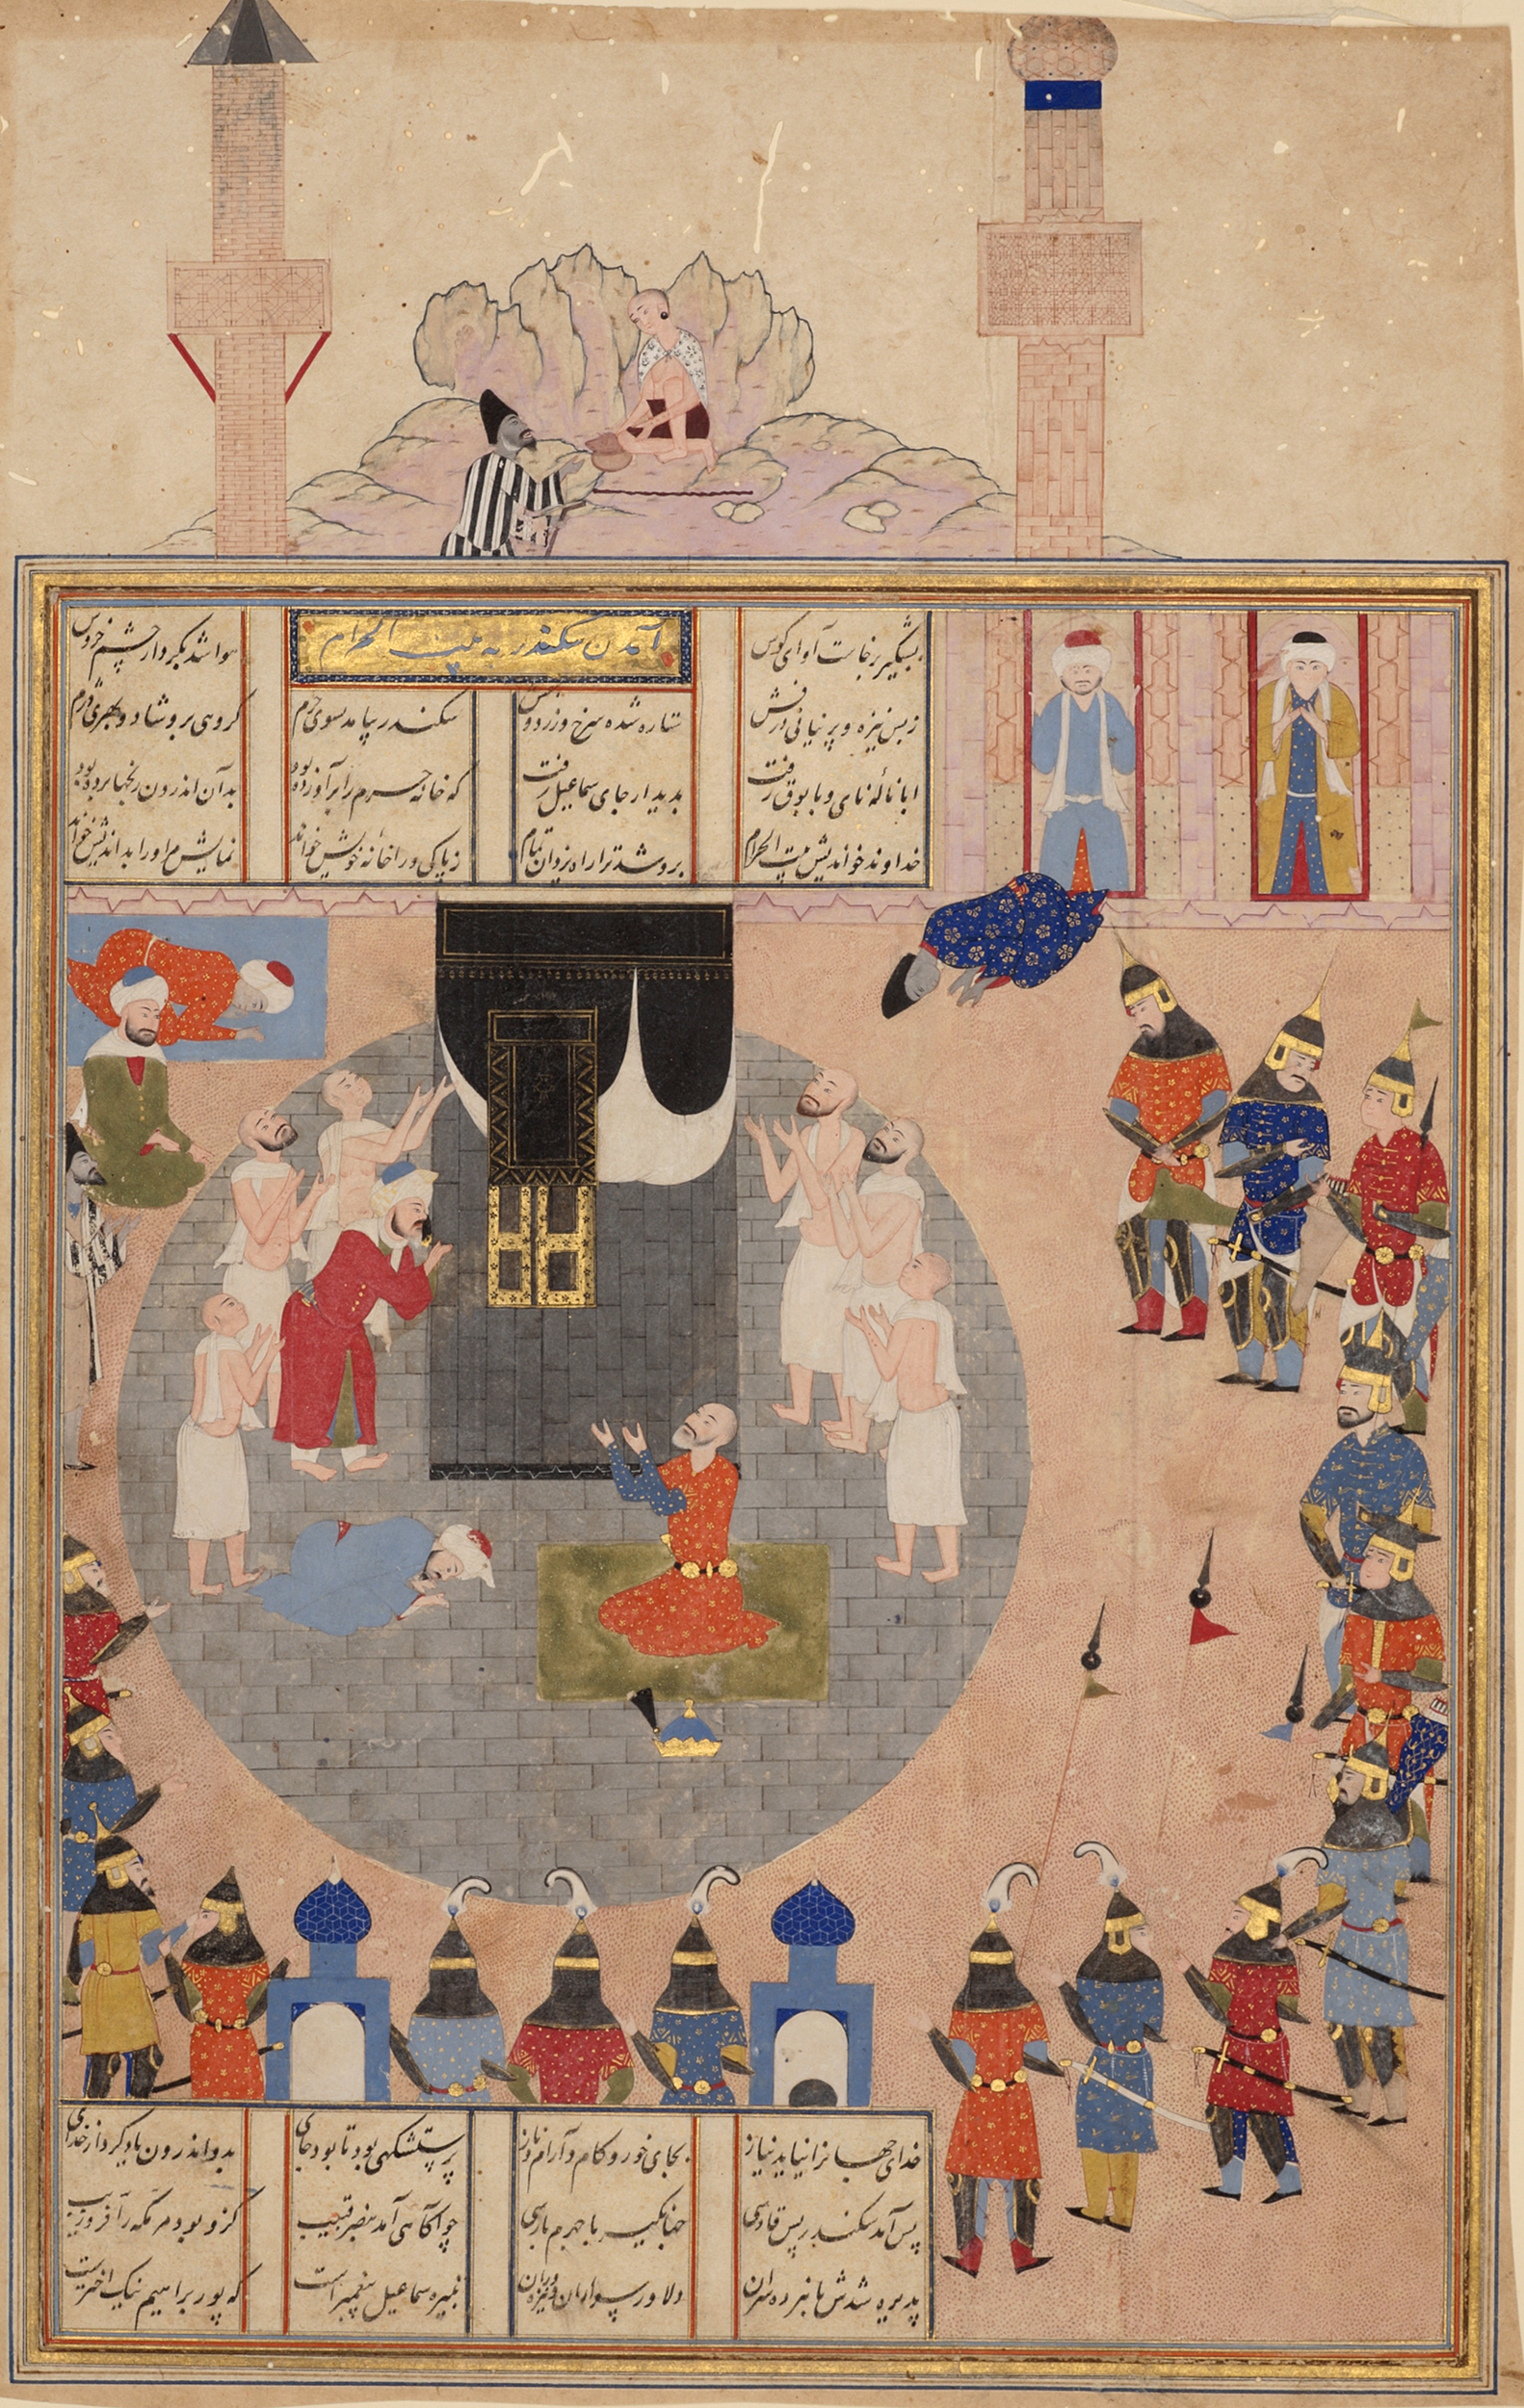 بشبگیر برخاست آوای کوس
آمدن سکندر به بیت الحرام
هوا شد بکردار چشم خروس
ز بس نیزه و پرنیانی درفش ستاره شده سرخ و زرد و بنفش سکندر بیامد بسوی حرم گروهی برو شاد و بهری دژم
ابا نالهٔ نای و با بوق رفت بدیدار جای سماعیل رفت که خانه حرم را برآورده بود بدان اندرون رنجها برده بود
خداوند خواندیش بیت الحرام برو شد ترا راه یزدان تمام ز پاکی ورا خانهٔ خویش خواند مر اورا بد اندیش خواند
خدای جهانرا نیاید نیاز بجای خور و کام و آرام و ناز پرستشگهی بود تا بود جای بدو اندرون یاد کرد از خدای
پس آمد سکندر پس قادسی جهانگیر با جهرم پارسی چو آگاهی آمد بنصر قتیب کزو بود مر مکه را فر و زیب
پذیره شدش با نبرده سران دلاور سواران و نیزه وران نبیره سماعیل پیغمبر است که پور براهیم نیک اخترست